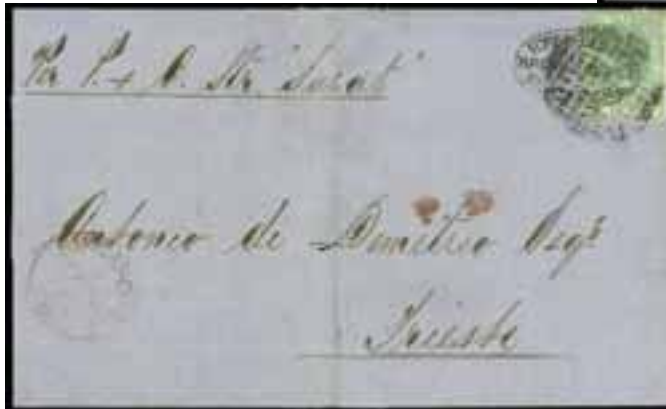 Per P. & O. Str "Surat"
Antonio de Demetrio Esqr
Trieste